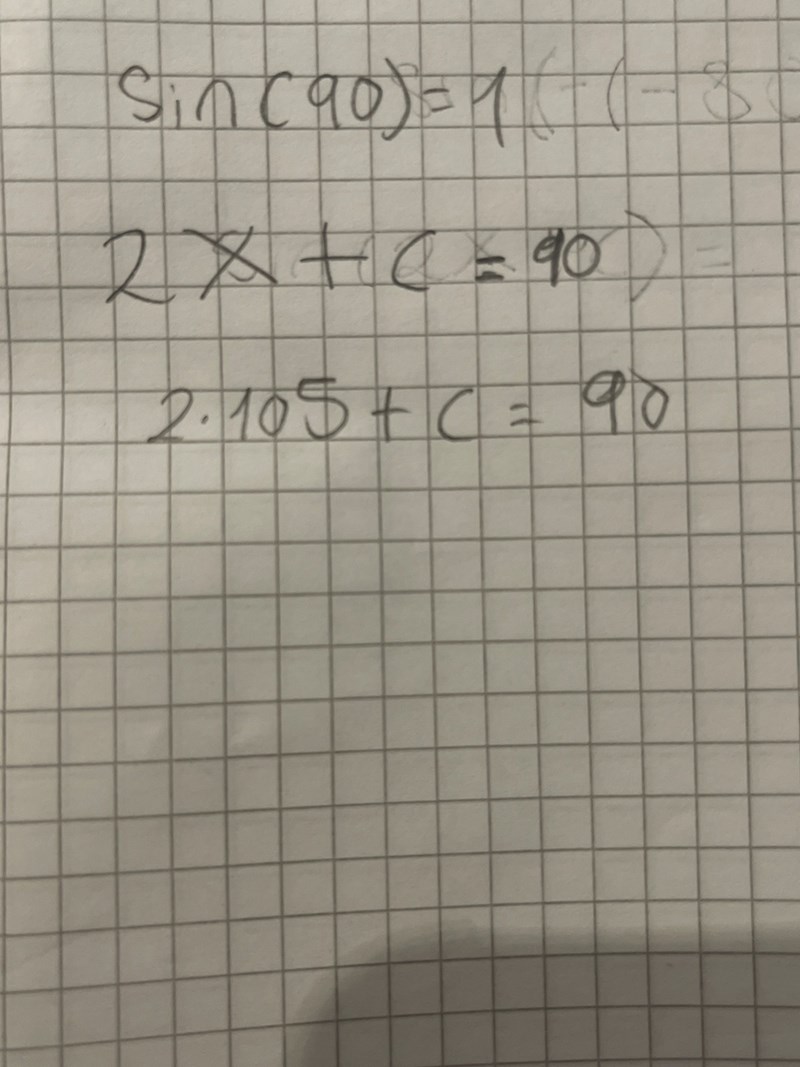 sin(90)=1
2x+c=90
2·105+c=90